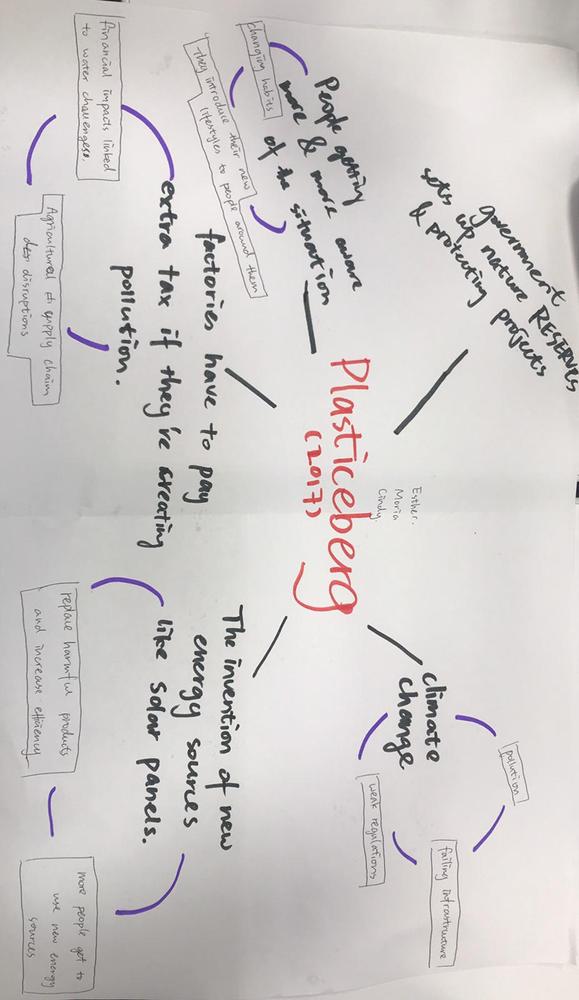 Plasticeberg
(2017)
Esther.
Moria
Cindy.
government
sets up nature RESERVES
& protecting projects
People getting
more & more aware
of the situation
changing habies
They introduce their new
lifestyles to people around them
factories have to pay
extra tax if they're creating
pollution.
Financial impacts linked
to water challenges.
Agricultural supply chain
disruptions
The invention of new
energy sources
like solar panels.
replace harmful products
and increase efficiency
more people get to
use new energy
sources
climate
change
pollution
weak regulations
failing infrastructure